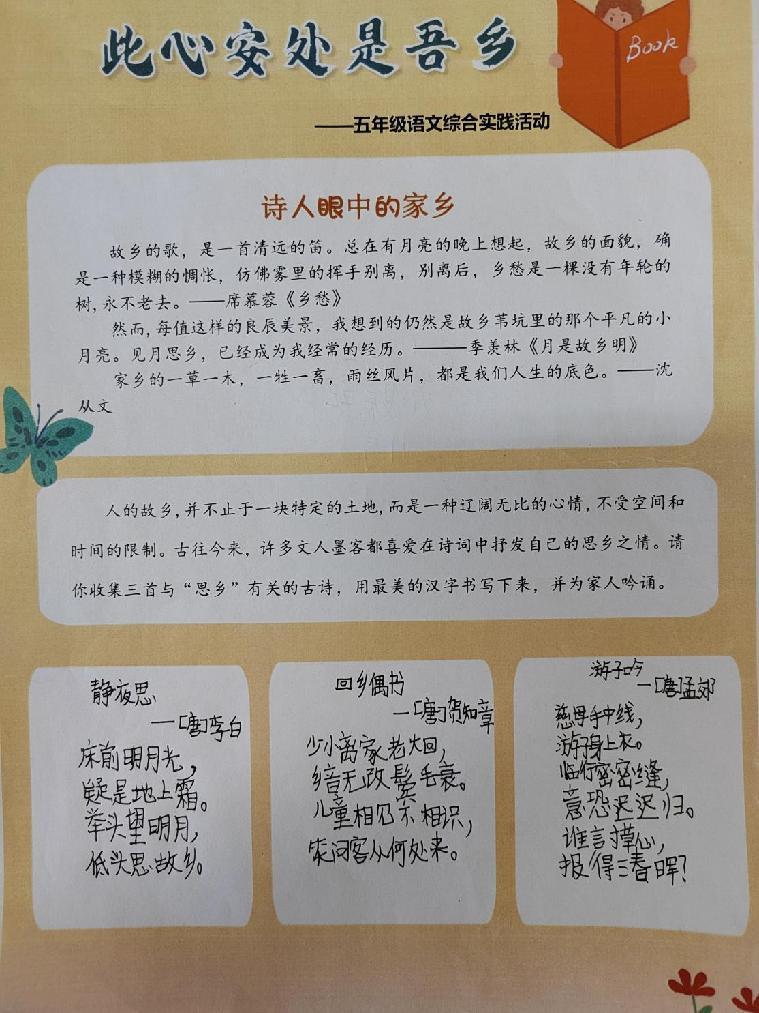 此心安处是吾乡
Book
——五年级语文综合实践活动
诗人眼中的家乡
故乡的歌，是一首清远的笛。总在有月亮的晚上想起，故乡的面貌，确
是一种模糊的惆怅，仿佛雾里的挥手别离，别离后，乡愁是一棵没有年轮的
树，永不老去。——席慕蓉《乡愁》
然而，每值这样的良辰美景，我想到的仍然是故乡苇坑里的那个平凡的小
月亮。见月思乡，已经成为我经常的经历。———季羡林《月是故乡明》
家乡的一草一木，一牲一畜，雨丝风片，都是我们人生的底色。——沈
从文
人的故乡，并不止于一块特定的土地，而是一种辽阔无比的心情，不受空间和
时间的限制。古往今来，许多文人墨客都喜爱在诗词中抒发自己的思乡之情。请
你收集三首与“思乡”有关的古诗，用最美的汉字书写下来，并为家人吟诵。
静夜思
—[唐]李白
床前明月光，
疑是地上霜。
举头望明月，
低头思故乡。
回乡偶书
—[唐]贺知章
少小离家老大回，
乡音无改鬓毛衰。
儿童相见不相识，
笑问客从何处来。
游子吟
—[唐]孟郊
慈母手中线，
游子身上衣。
临行密密缝，
意恐迟迟归。
谁言寸草心，
报得三春晖？